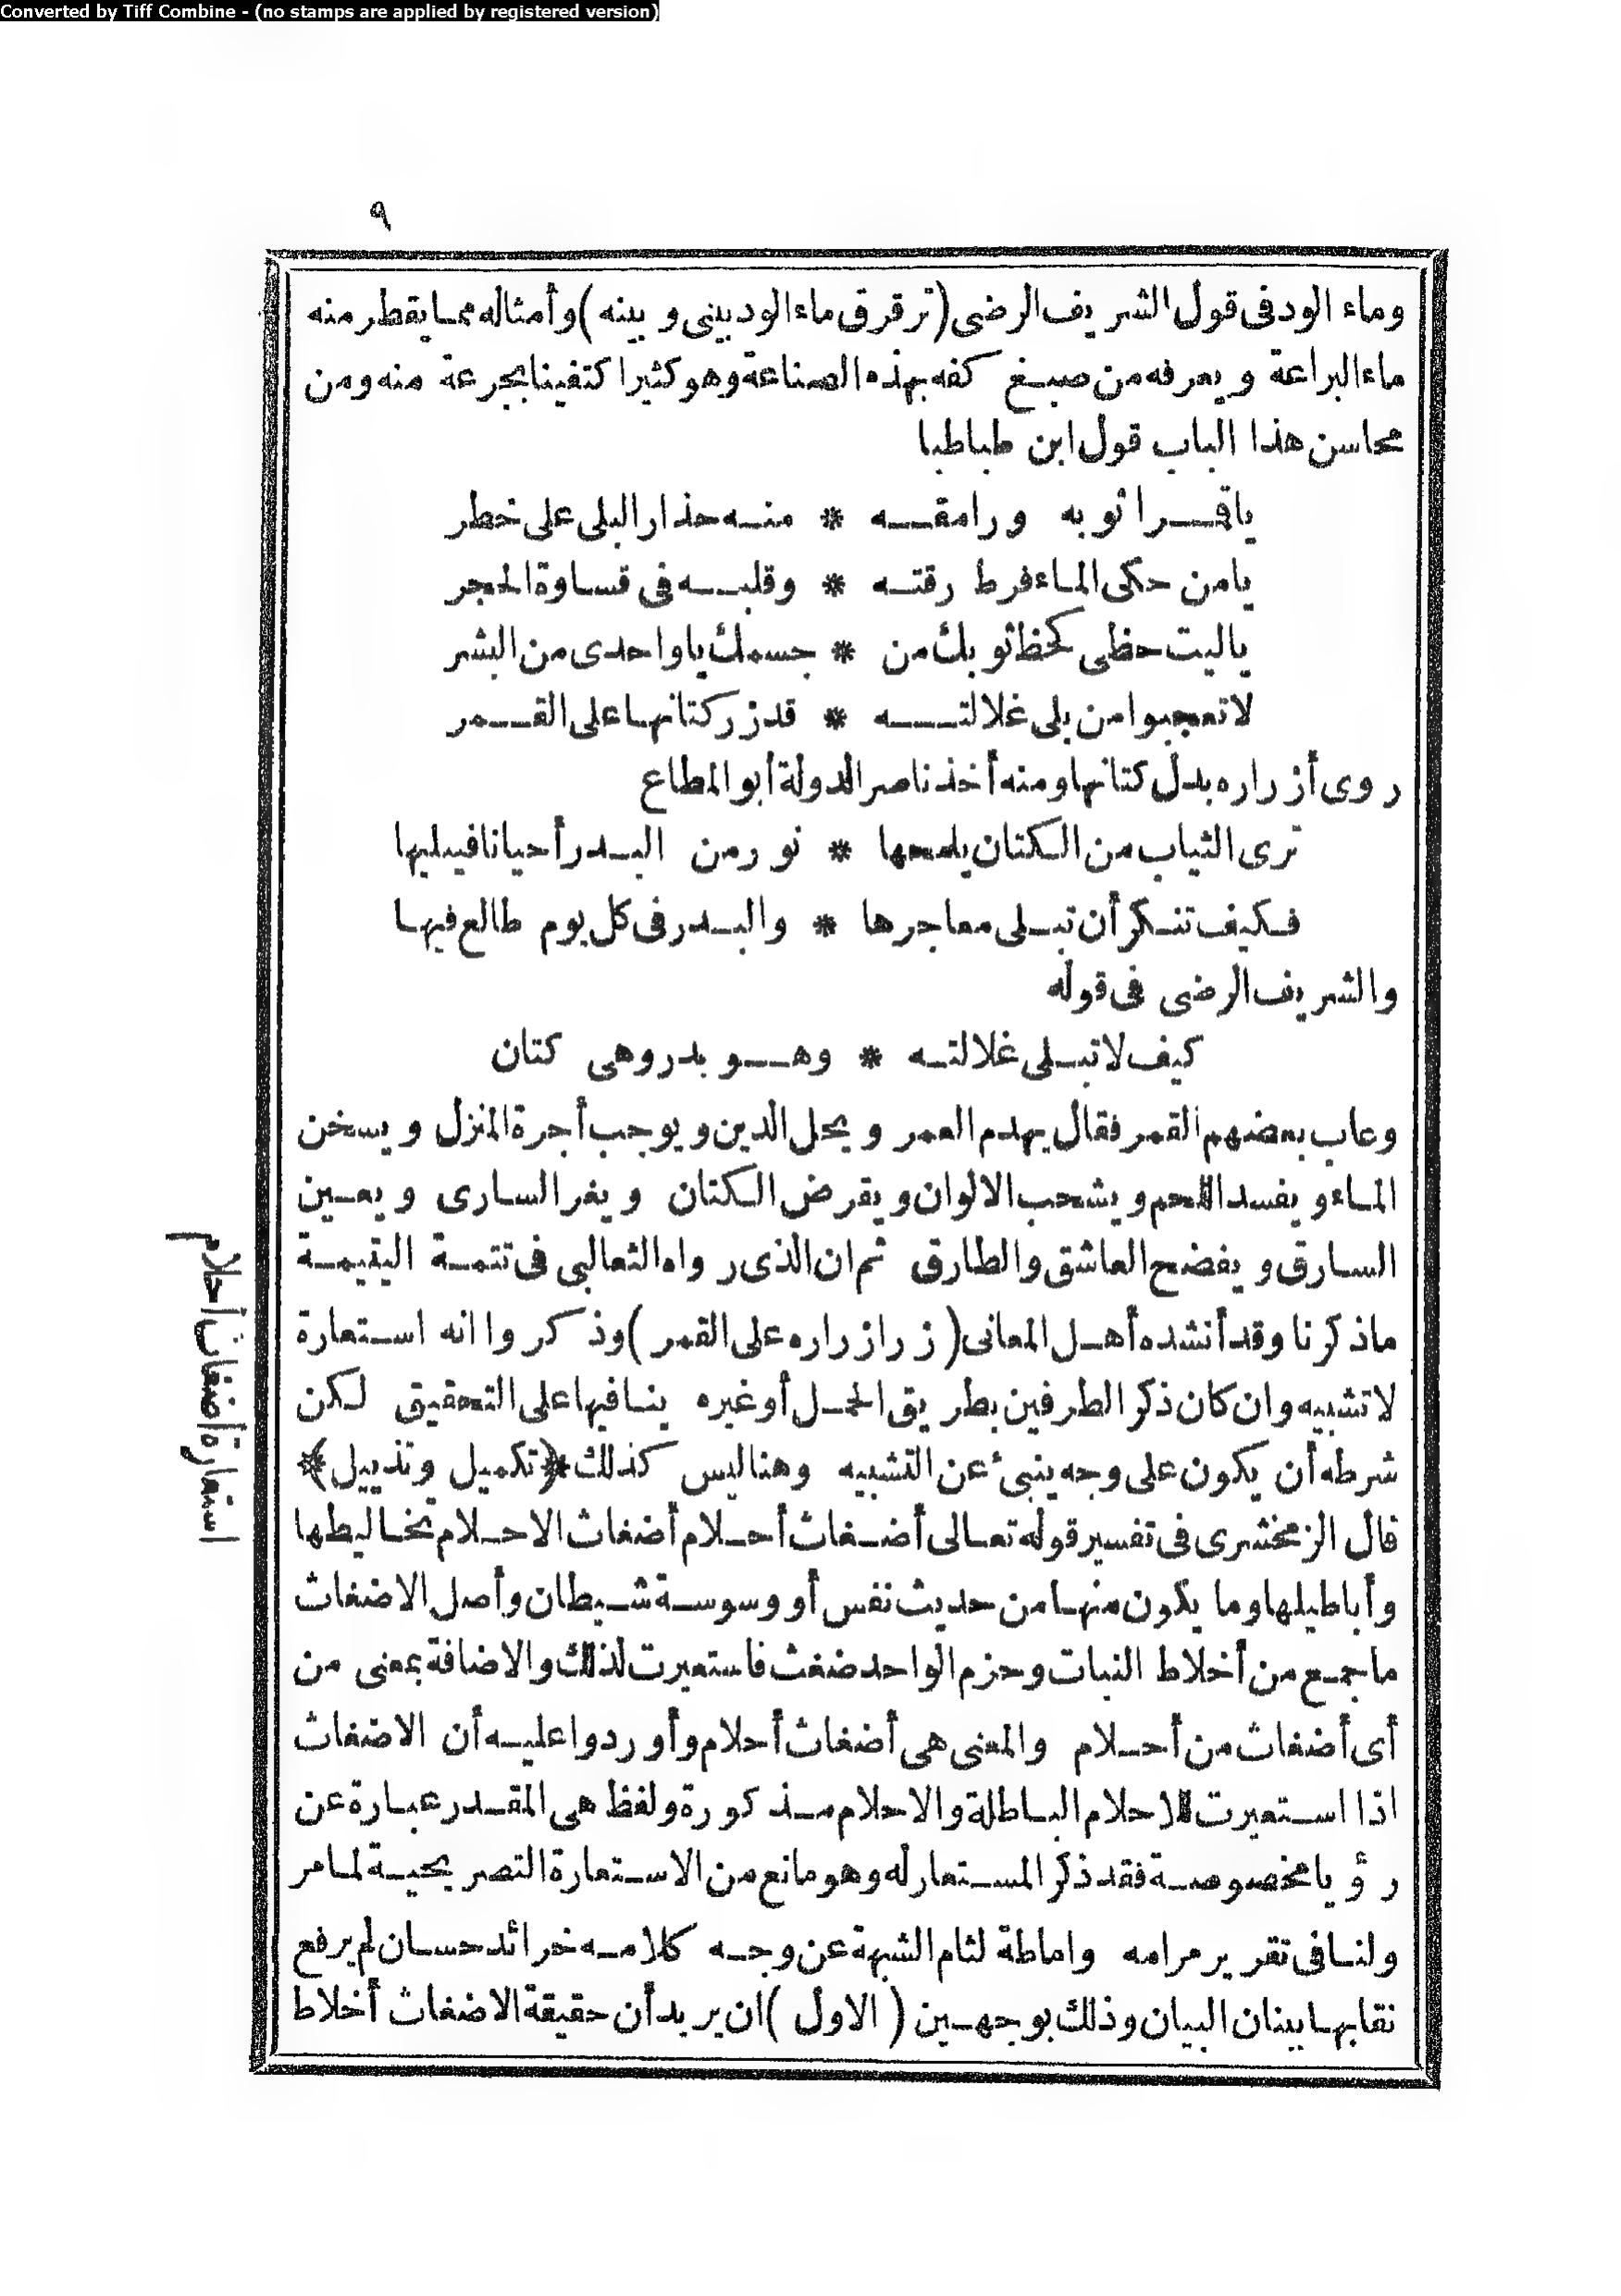 Converted by Tiff Combine - (no stamps are applied by registered version)
٩
وماء الود فى قول الشريف الرضى (ترقرق ماء الود بينى وبينه) وأمثاله مما يقطر منه
ماء البراعة ويعرفه من صبغ كفه بهذه الصناعة وهو كثير اكتفينا بجرعة منه ومن
محاسن هذا الباب قول ابن طباطبا
ياقمرا ثوبه ورامقه * منه حذار البلى على خطر
يامن حكى الماء فرط رقته * وقلبه فى قساوة الحجر
ياليت حظى كحظ ثوبك من * جسمك ياواحدى من البشر
لاتعجبوا من بلى غلالته * قد زر كتانها على القمر
روى أزراره بدل كتانها ومنه أخذ ناصر الدولة أبو المطاع
ترى الثياب من الكتان يلمحها * نور من البدر أحيانا فيبليها
فكيف تنكر أن تبلى معاجرها * والبدر فى كل يوم طالع فيها
والشريف الرضى فى قوله
كيف لاتبلى غلالته * وهو بدر وهى كتان
وعاب بعضهم القمر فقال يهدم العمر ويحل الدين ويوجب أجرة المنزل ويسخن
الماء ويفسد اللحم ويشحب الالوان ويقرض الكتان ويغر السارى ويعين
السارق ويفضح العاشق والطارق ثم ان الذى رواه الثعالبى فى تتمة اليتيمة
ماذكرنا وقد أنشده أهل المعانى (زر ازراره على القمر) وذكروا انه استعارة
لاتشبيه وان كان ذكر الطرفين بطريق الحمل أوغيره ينافيها على التحقيق لكن
شرطه أن يكون على وجه ينبئ عن التشبيه وهنا ليس كذلك ﴿تكميل وتذييل﴾
قال الزمخشرى فى تفسير قوله تعالى أضغاث أحلام أضغاث الاحلام تخاليطها
وأباطيلها وما يكون منها من حديث نفس أو وسوسة شيطان وأصل الاضغاث
ماجمع من أخلاط النبات وحزم الواحد ضغث فاستعيرت لذلك والاضافة بمعنى من
أى أضغاث من أحلام والمعنى هى أضغاث أحلام وأوردوا عليه أن الاضغاث
اذا استعيرت للاحلام الباطلة والاحلام مذكورة ولفظ هى المقدر عبارة عن
رؤيا مخصوصة فقد ذكر المستعار له وهو مانع من الاستعارة التصريحية لمامر
ولنا فى تقرير مرامه واماطة لثام الشبهة عن وجه كلامه خرائد حسان لم يرفع
نقابها ببنان البيان وذلك بوجهين (الاول) ان يريد أن حقيقة الاضغاث أخلاط
استعارة أضغاث أحلام